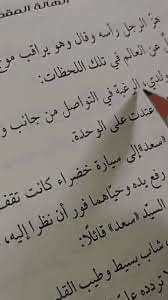 الهالة المقد
هزّ الرجل رأسه وقال وهو يراقب موج
عن العالم في تلك اللحظات:
الرغبة في التواصل من جانب و
اعتدت على الوحدة.
«سعد» إلى سيارة خضراء كانت تقف
رفع يده وحيّاهما فور أن نظرا إليه،
السيّد «سعد» قائلًا:
بسيط وطيب القلب
تردده